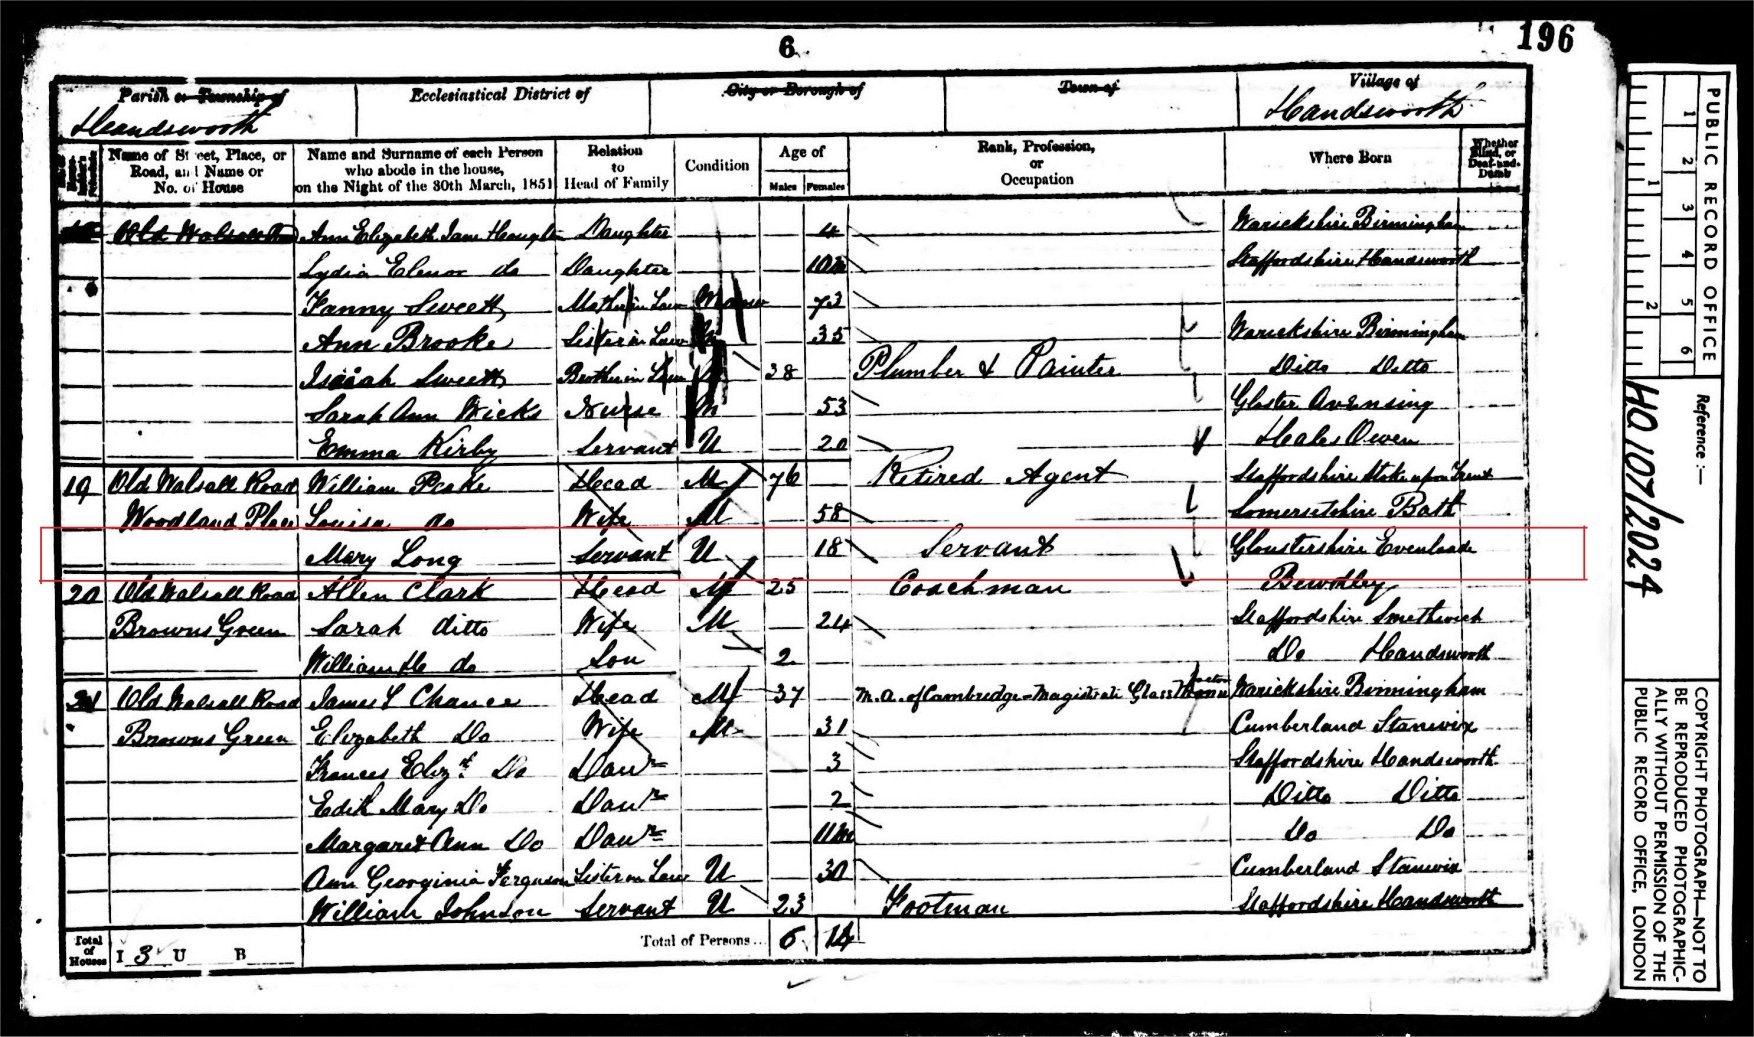 6
196
Parish or Township of
Ecclesiastical District of
City or Borough of
Town of
Village of
Handsworth
Handsworth
Name of Street, Place, or Road, and Name or No. of House
Name and Surname of each Person who abode in the house, on the Night of the 30th March, 1851
Relation to Head of Family
Condition
Age of
Males Females
Rank, Profession, or Occupation
Where Born
Whether Blind, or Deaf-and-Dumb
Ann Elizabeth Jane Daughter 4 Warickshire Birmingham
Lydia Elenor do Daughter Staffordshire Handsworth
Fanny Sweett Mother in Law 73
Ann Brooke Sister in Law 35 Warickshire Birmingham
Isiah Sweett Brother in Law 38 Plumber & Painter Ditto Ditto
Sarah Ann Wicks Nurse M 53 Gloster
Emma Kirby Servant U 20 Hales Owen
19 Old Walsall Road William Peake Head M 76 Retired Agent Staffordshire Stoke upon Trent
Woodland Place Louisa do Wife M 58 Somersetshire Bath
Mary Long Servant U 18 Servant Gloustershire Evenloade
20 Old Walsall Road Allen Clark Head M 25 Coachman Bewdley
Browns Green Sarah ditto Wife M 24 Staffordshire Smethwick
William H do Son 2 Do Handsworth
21 Old Walsall Road James T Chance Head M 37 M.A. of Cambredge - Magistrate Glass Warickshire Birmingham
Browns Green Elizabeth Do Wife M 31 Cumberland Stanwix
Frances Elizt Do Daur 3 Staffordshire Handsworth
Edith Mary Do Daur 2 Ditto Ditto
Margaret Ann Do Daur 11m Do Do
Ann Georginia Ferguson Sister in Law U 30 Cumberland Stanwix
William Johnson Servant U 23 Footman Staffordshire Handsworth
Total of Houses I 3 U B
Total of Persons... 6 14
PUBLIC RECORD OFFICE
1 2 3 4 5 6
1 2
Reference :—
HO 107/2024
COPYRIGHT PHOTOGRAPH—NOT TO
BE REPRODUCED PHOTOGRAPHIC-
ALLY WITHOUT PERMISSION OF THE
PUBLIC RECORD OFFICE, LONDON